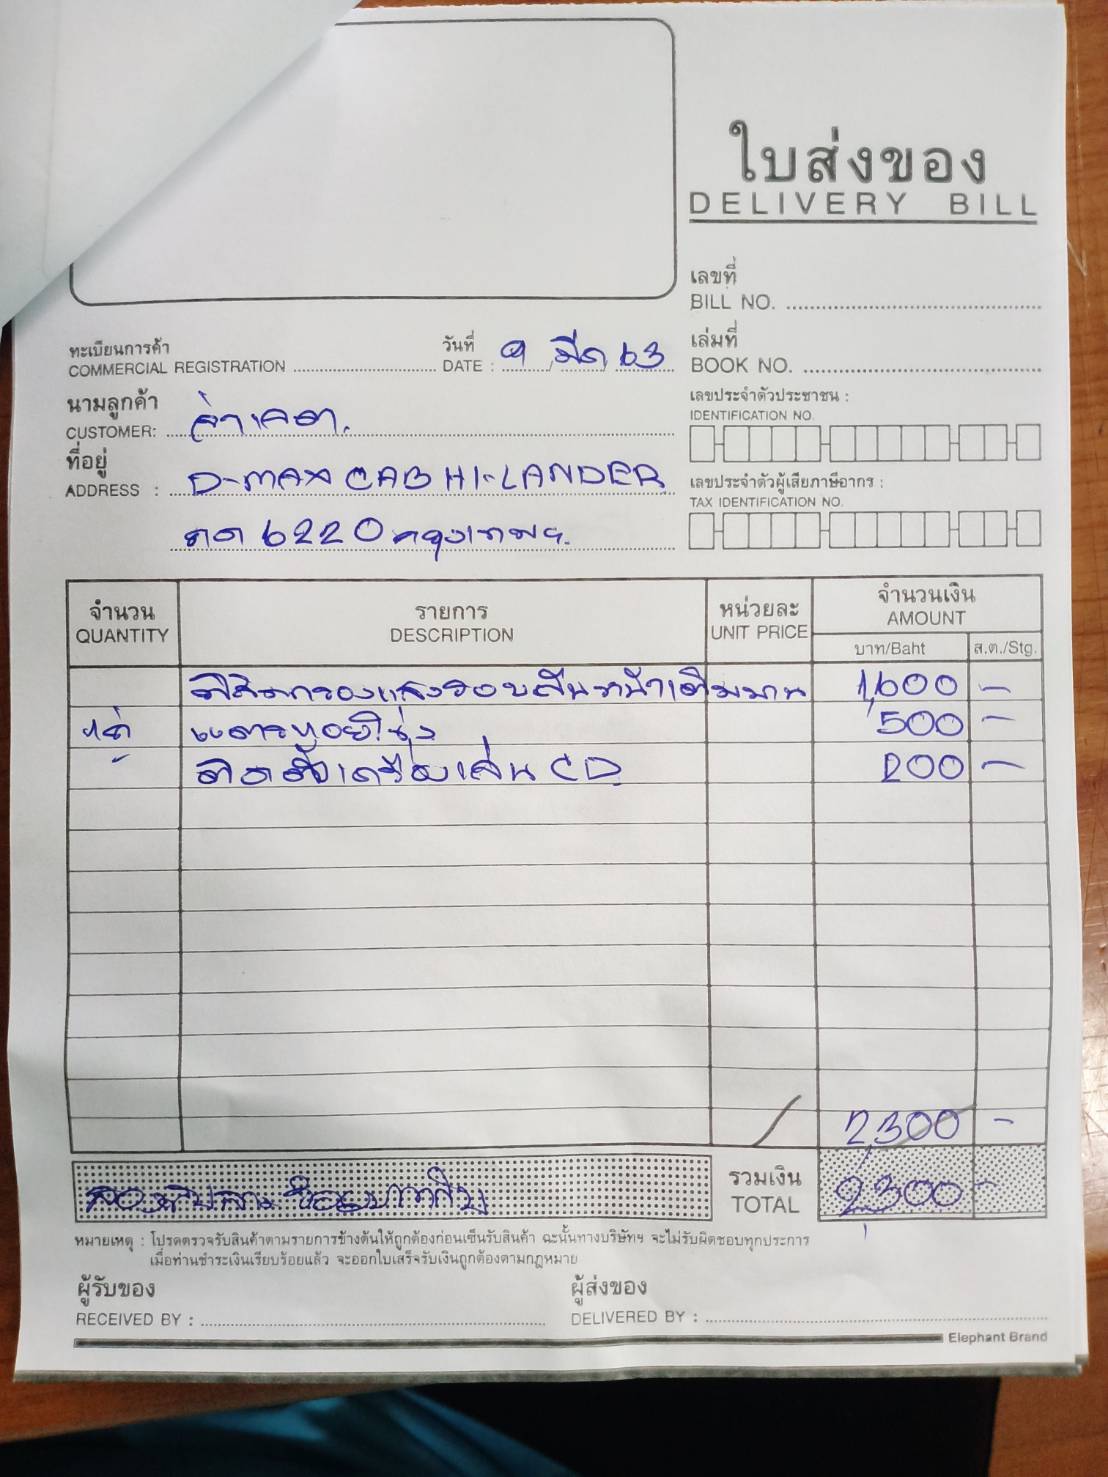 ใบส่งของ
DELIVERY BILL
เลขที่
BILL NO.
ทะเบียนการค้า
COMMERCIAL REGISTRATION
วันที่
DATE : 9 มีค 63
เล่มที่
BOOK NO.
นามลูกค้า
CUSTOMER:
เลขประจำตัวประชาชน :
IDENTIFICATION NO.
ที่อยู่
ADDRESS : D-MAX CAB HI-LANDER
6220 กรุงเทพฯ.
เลขประจำตัวผู้เสียภาษีอากร :
TAX IDENTIFICATION NO.
จำนวน รายการ หน่วยละ จำนวนเงิน
QUANTITY DESCRIPTION UNIT PRICE AMOUNT
บาท/Baht ส.ต./Stg.
ฟิล์มกรองแสงรอบคันหน้าเต็มบาน 1,600 -
1คู่ แตรหอยโข่ง 500 -
ติดตั้งเครื่องเล่น CD 200 -
2,300 -
สองพันสามร้อยบาทถ้วน
รวมเงิน
TOTAL 2,300 -
หมายเหตุ : โปรดตรวจรับสินค้าตามรายการข้างต้นให้ถูกต้องก่อนเซ็นรับสินค้า ฉะนั้นทางบริษัทฯ จะไม่รับผิดชอบทุกประการ
เมื่อท่านชำระเงินเรียบร้อยแล้ว จะออกใบเสร็จรับเงินถูกต้องตามกฎหมาย
ผู้รับของ
RECEIVED BY :
ผู้ส่งของ
DELIVERED BY :
Elephant Brand